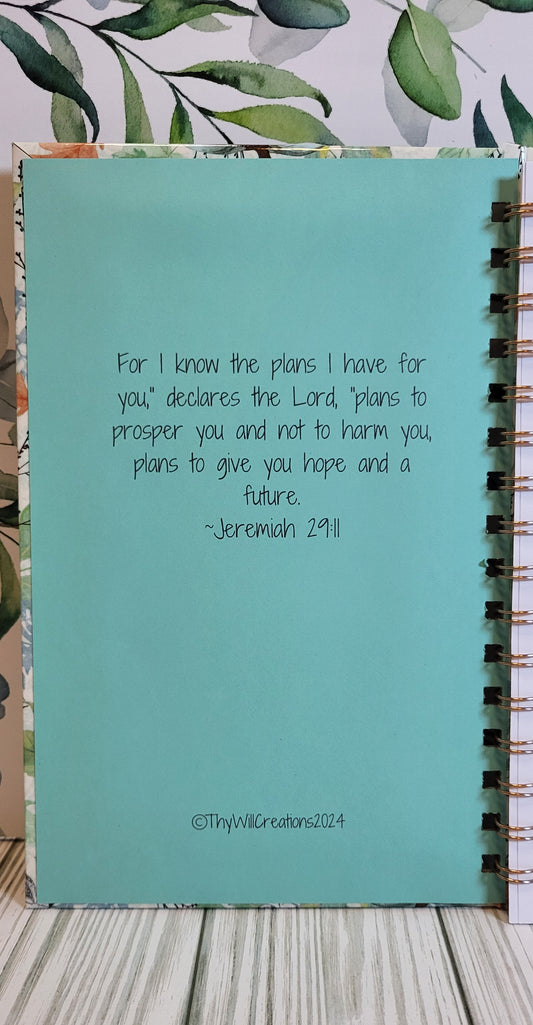 For I know the plans I have for
you," declares the Lord, "plans to
prosper you and not to harm you,
plans to give you hope and a
future.
~Jeremiah 29:11
©ThyWillCreations2024